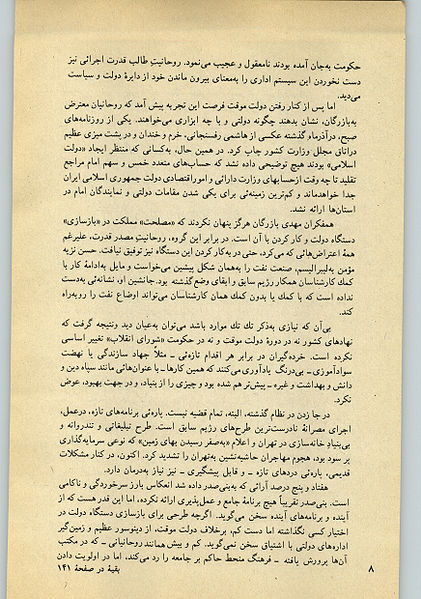 حکومت به‌جان آمده بودند نامعقول و عجیب می‌نمود. روحانیتِ طالب قدرت اجرائی نیز
دست نخوردن این سیستم اداری را به‌معنای بیرون ماندن خود از دایرهٔ دولت و سیاست
می‌دید.
اما پس از کنار رفتن دولت موقت فرصت این تجربه پیش آمد که روحانیان معترض
به‌بازرگان، نشان بدهند چگونه دولتی و با چه ابزاری می‌خواهند. یکی از روزنامه‌های
صبح، در‌آذرماه گذشته عکسی از هاشمی رفسنجانی، خرم و خندان و در پشت میزی عظیم
در‌اتاق مجلل وزارت کشور چاپ کرد. در همین حال، به‌کسانی که منتظر ایجاد «دولت
اسلامی» بودند هیچ توضیحی داده نشد که حساب‌های متعدد خمس و سهم امام مراجع
تقلید تا چه وقت از‌حسابهای وزارت دارائی و امور‌اقتصادی دولت جمهوری اسلامی ایران
جدا خواهدماند و کم‌ترین زمینه‌ئی برای یکی شدن مقامات دولتی و نمایندگان امام در
استان‌ها ارائه نشد.
همفکران مهدی بازرگان هرگز پنهان نکردند که «مصلحت» مملکت در «بازسازی»
دستگاه دولت و کار کردن با آن است. در برابر این گروه، روحانیتِ مصدر قدرت، علیرغم
همهٔ اعتراض‌هائی که می‌کرد، حتی در به‌کار کردن این دستگاه نیز توفیق نیافت. حسن نزیه
مؤمن به‌لیبرالیسم، صنعت نفت را به‌همان شکل پیشین می‌خواست و مایل به‌ادامهٔ کار با
کمك کارشناسان همکار رژیم سابق و ابقای وضع‌گذشته بود. جانشین او، نشانه‌ئی به‌دست
نداده است که با کمك یا بدون کمك همان کارشناسان می‌تواند اوضاع نفت را روبه‌راه
کند.
بی‌آن که نیازی به‌ذکر تك تك موارد باشد می‌توان به‌عیان دید ونتیجه گرفت که
نهادهای کشور نه در دورهٔ دولت موقت و نه در حکومت «شورای انقلاب» تغییر اساسی
نکرده است. خرده‌گیران در برابر هر اقدام تازه‌ئی ـ مثلاً جهاد سازندگی یا نهضت
سوادآموزی ـ بی‌درنگ یادآوری می‌کنند که همین کارها ـ با عنوان‌هائی مانند سپاه دین و
دانش و بهداشت و غیره ـ بیش‌تر هم شده بود و چیزی را از بنیاد، و در جهت بهبود، عوض
نکرد.
در جا زدن در نظام گذشته، البته، تمام قضیه نیست. پاره‌ئی برنامه‌های تازه، در‌عمل،
اجرای مصرانهٔ نادرست‌ترین طرح‌های رژیم سابق است. طرح تبلیغاتی و تندروانه و
بی‌بنیادِ خانه‌سازی در تهران و اعلام «به‌صفر رسیدن بهای زمین» که نوعی سرمایه‌گذاری
بر سود بود، هجوم مهاجران حاشیه‌نشین به‌تهران را تشدید کرد. اکنون، در کنار مشکلات
قدیمی، پاره‌ئی دردهای تازه ـ و قابل پیشگیری ـ نیز نیاز به‌درمان دارد.
هفتاد و پنج درصد آرائی که به‌بنی‌صدر داده شد انعکاس بارز سرخوردگی و ناکامی
است. بنی‌صدر تقریباً هیچ برنامهٔ جامع و عمل‌پذیری ارائه نکرده، اما این قدر هست که از
آینده و برنامه‌های آینده سخن می‌گوید. اگرچه طرحی برای بازسازی دستگاه دولت در
اختیار کسی نگذاشته اما دست کم، برخلاف دولت موقت، از دینوسور عظیم و زمین‌گیر
اداره‌های دولتی با اشتیاق سخن نمی‌گوید. کم و بیش‌همانند روحانیانی ـ که در مکتب
آن‌ها پرورش یافته ـ فرهنگ منحط حاکم بر جامعه را رد می‌کند، اما در اولویت دادن
بقیهٔ در صفحهٔ ۱۴۱
۸